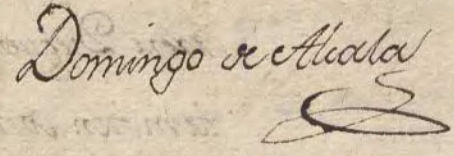 Domingo de Alcala